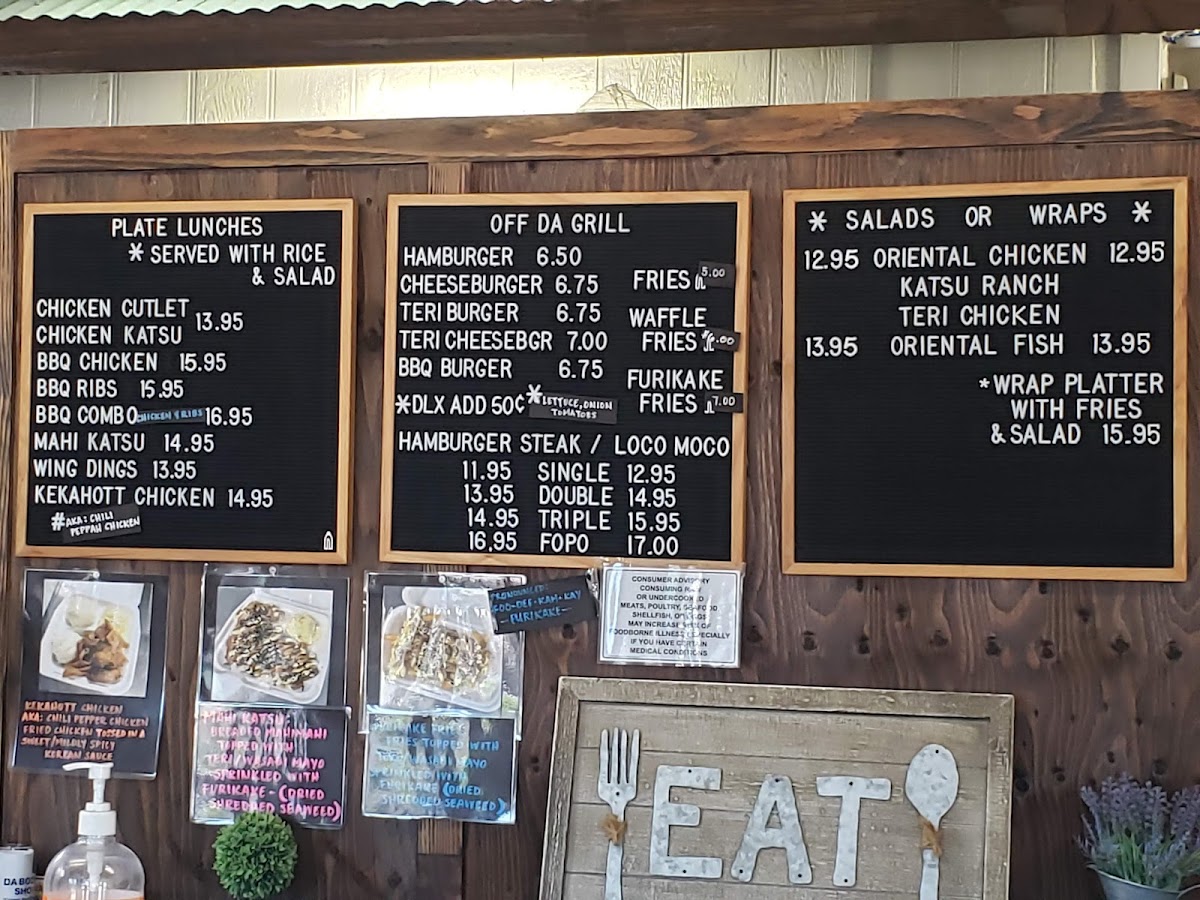 PLATE LUNCHES
* SERVED WITH RICE
& SALAD
CHICKEN CUTLET
CHICKEN KATSU 13.95
BBQ CHICKEN 15.95
BBQ RIBS 15.95
BBQ COMBO CHICKEN & RIBS 16.95
MAHI KATSU 14.95
WING DINGS 13.95
KEKAHOTT CHICKEN 14.95
# AKA: CHILI
PEPPAH CHICKEN
OFF DA GRILL
HAMBURGER 6.50
CHEESEBURGER 6.75
TERI BURGER 6.75
TERI CHEESEBGR 7.00
BBQ BURGER 6.75
FRIES 5.00
WAFFLE
FRIES
FURIKAKE
FRIES 7.00
*DLX ADD 50¢ *LETTUCE, ONION
TOMATOES
HAMBURGER STEAK / LOCO MOCO
11.95 SINGLE 12.95
13.95 DOUBLE 14.95
14.95 TRIPLE 15.95
16.95 FOPO 17.00
* SALADS OR WRAPS *
12.95 ORIENTAL CHICKEN 12.95
KATSU RANCH
TERI CHICKEN
13.95 ORIENTAL FISH 13.95
*WRAP PLATTER
WITH FRIES
& SALAD 15.95
KEKAHOTT CHICKEN
AKA: CHILI PEPPER CHICKEN
FRIED CHICKEN TOSSED IN A
SWEET/MILDLY SPICY
KOREAN SAUCE
MAHI KATSU:
BREADED MAHIMAHI
TOPPED WITH
TERI/WASABI MAYO
SPRINKLED WITH
FURIKAKE - (DRIED
SHREDDED SEAWEED)
FURIKAKE FRIES
FRIES TOPPED WITH
TERI/WASABI MAYO
SPRINKLED WITH
FURIKAKE - (DRIED
SHREDDED SEAWEED)
PRONOUNCED:
FOO-DEE-KAH-KAY
- FURIKAKE -
CONSUMER ADVISORY
CONSUMING RAW
OR UNDERCOOKED
MEATS, POULTRY, SEAFOOD
SHELLFISH, OR EGGS
MAY INCREASE RISK OF
FOODBORNE ILLNESS, ESPECIALLY
IF YOU HAVE CERTAIN
MEDICAL CONDITIONS
EAT